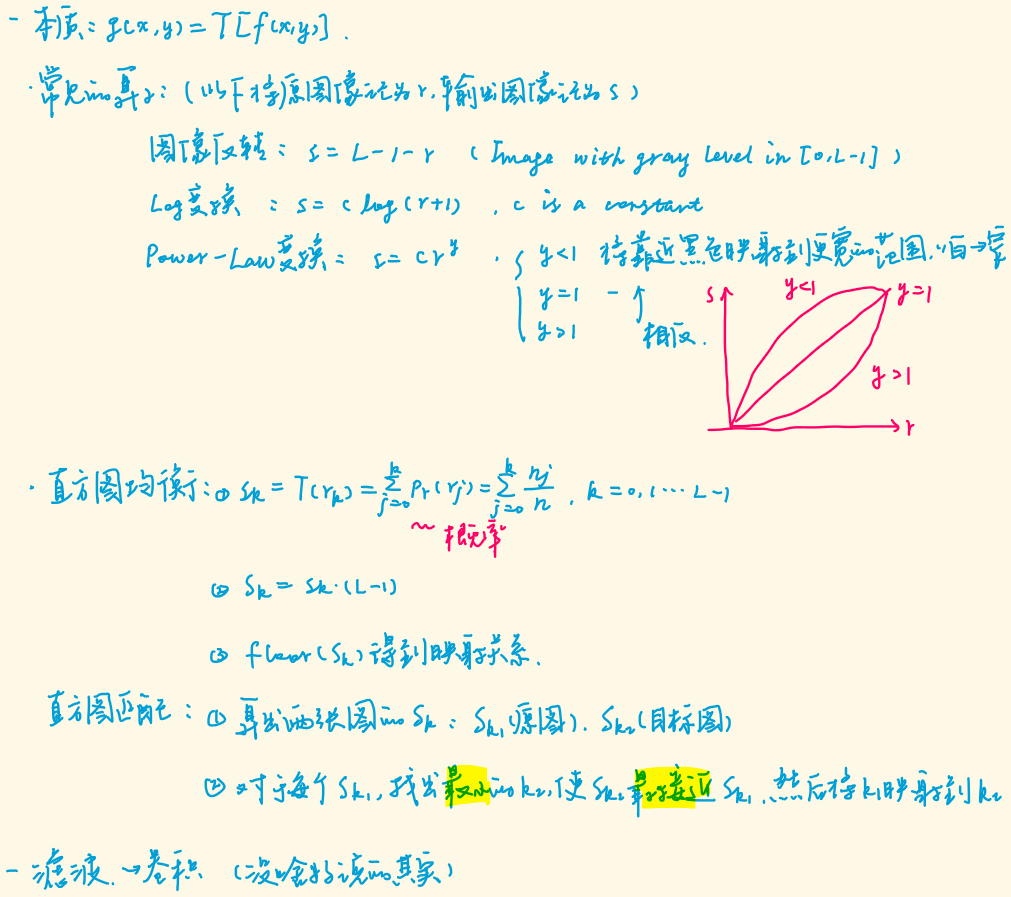 - 本质: g(x,y) = T[f(x,y)].
· 常见的算子: (以下将原图像记为r, 输出图像记为s)
图像反转: s = L-1-r (Image with gray level in [0,L-1])
Log变换: s = c log(r+1), c is a constant
Power-Law变换: s = cr^γ . { γ<1 将靠近黑色映射到更宽的范围, 白→窄
γ=1 - ↑
γ>1 相反.
s γ<1 γ=1
γ>1
r
· 直方图均衡: ① sk = T(rk) = ∑_{j=0}^{k} Pr(rj) = ∑_{j=0}^{k} nj/n, k = 0,1…L-1
~ 概率
② Sk = sk·(L-1)
③ floor(Sk) 得到映射关系.
直方图匹配: ① 算出两张图的Sk: Sk₁(原图). Sk₂(目标图)
② 对于每个Sk₁, 找出最小的k₂, 使Sk₂最接近Sk₁, 然后将k₁映射到k₂
- 滤波. → 卷积 (没啥好说的其实)